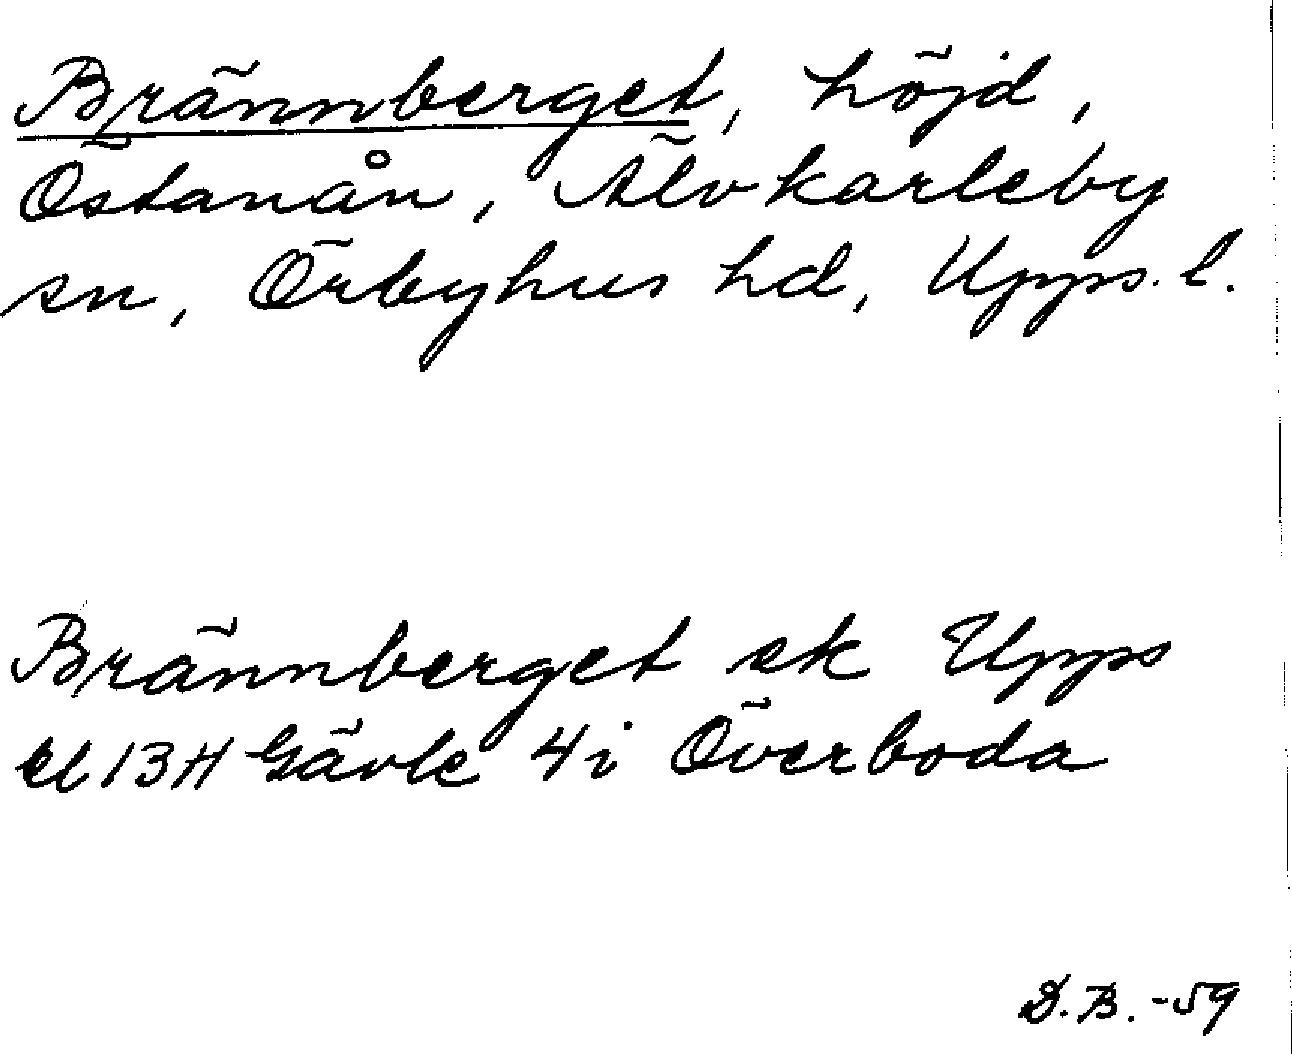 Brännberget, höjd,
Östanån, Älvkarleby
sn, Örbyhus hd, Upps. l.
Brännberget ek Upps
bl 13 H Gävle 4i Överboda
D.B. -59